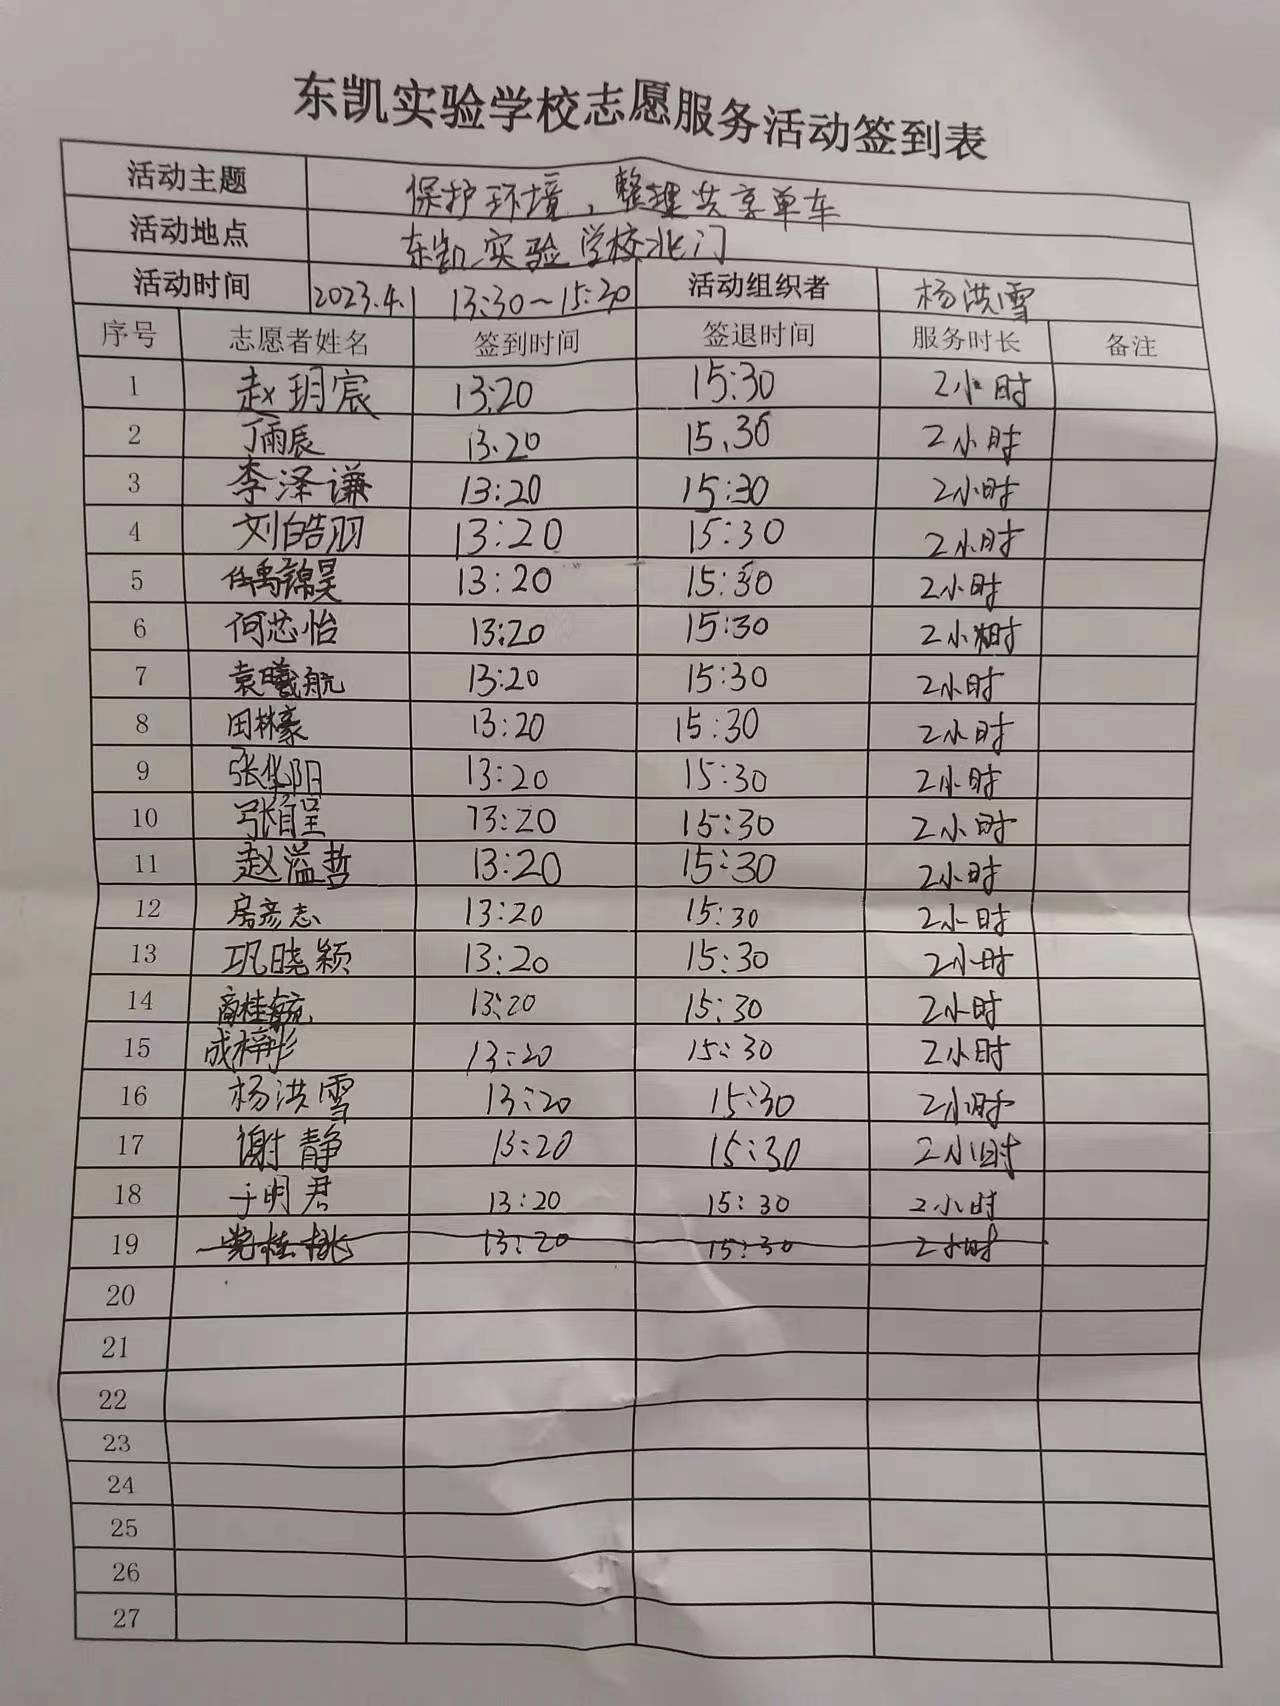 东凯实验学校志愿服务活动签到表
活动主题 保护环境，整理共享单车
活动地点 东凯实验学校北门
活动时间 2023.4.1 13:30~15:30 活动组织者 杨洪雪
序号 志愿者姓名 签到时间 签退时间 服务时长 备注
1 赵玥宸 13:20 15:30 2小时
2 丁雨辰 13.20 15.30 2小时
3 李泽谦 13:20 15:30 2小时
4 刘皓羽 13:20 15:30 2小时
5 任禹锦昊 13:20 15:30 2小时
6 何芯怡 13:20 15:30 2小时
7 袁曦航 13:20 15:30 2小时
8 田林豪 13:20 15:30 2小时
9 张华阳 13:20 15:30 2小时
10 张自呈 13:20 15:30 2小时
11 赵溢哲 13:20 15:30 2小时
12 房彦志 13:20 15:30 2小时
13 巩晓颖 13:20 15:30 2小时
14 高桂毓 13:20 15:30 2小时
15 成梓彤 13:20 15:30 2小时
16 杨洪雪 13:20 15:30 2小时
17 谢静 13:20 15:30 2小时
18 于明君 13:20 15:30 2小时
19 党桂桃 13:20 15:30 2小时
20
21
22
23
24
25
26
27